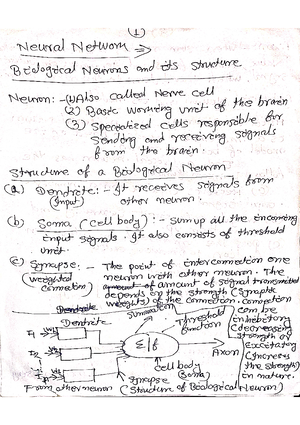 (1)
Neural Network
Biological Neurons and its structure
Neuron:- (1) Also called Nerve cell
(2) Basic working unit of the brain
(3) Specialized cells responsible for
sending and receiving signals
from the brain.
Structure of a Biological Neuron
(a) Dendrite:- It receives signals from
(Input) other neuron.
(b) Soma (cell body):- sum up all the incoming
input signals. It also consists of threshold
unit.
(c) Synapse:- The point of interconnection one
(weighted neuron with other neuron. The
connection) amount of amount of signal transmitted
depends on the strength (synaptic
weights) of the connection. connection
can be
inhibitory
(decreasing
strength) or
Excitatory
(Increase
the strength)
in nature.
Dendrite
Dendrite
summation
Threshold
function
Σ|f
Axon
cell body
(Soma)
Synapse
From other neuron (Structure of Biological Neuron)